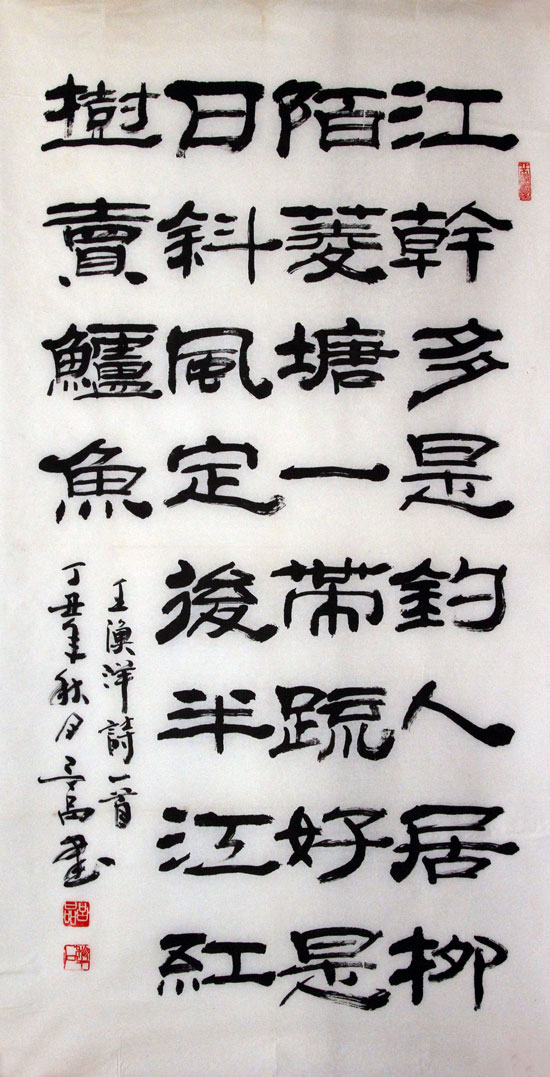 江幹多是釣人居柳
陌菱塘一帶疏好是
日斜風定後半江紅
樹賣鱸魚
王漁洋詩一首
丁丑年秋月書